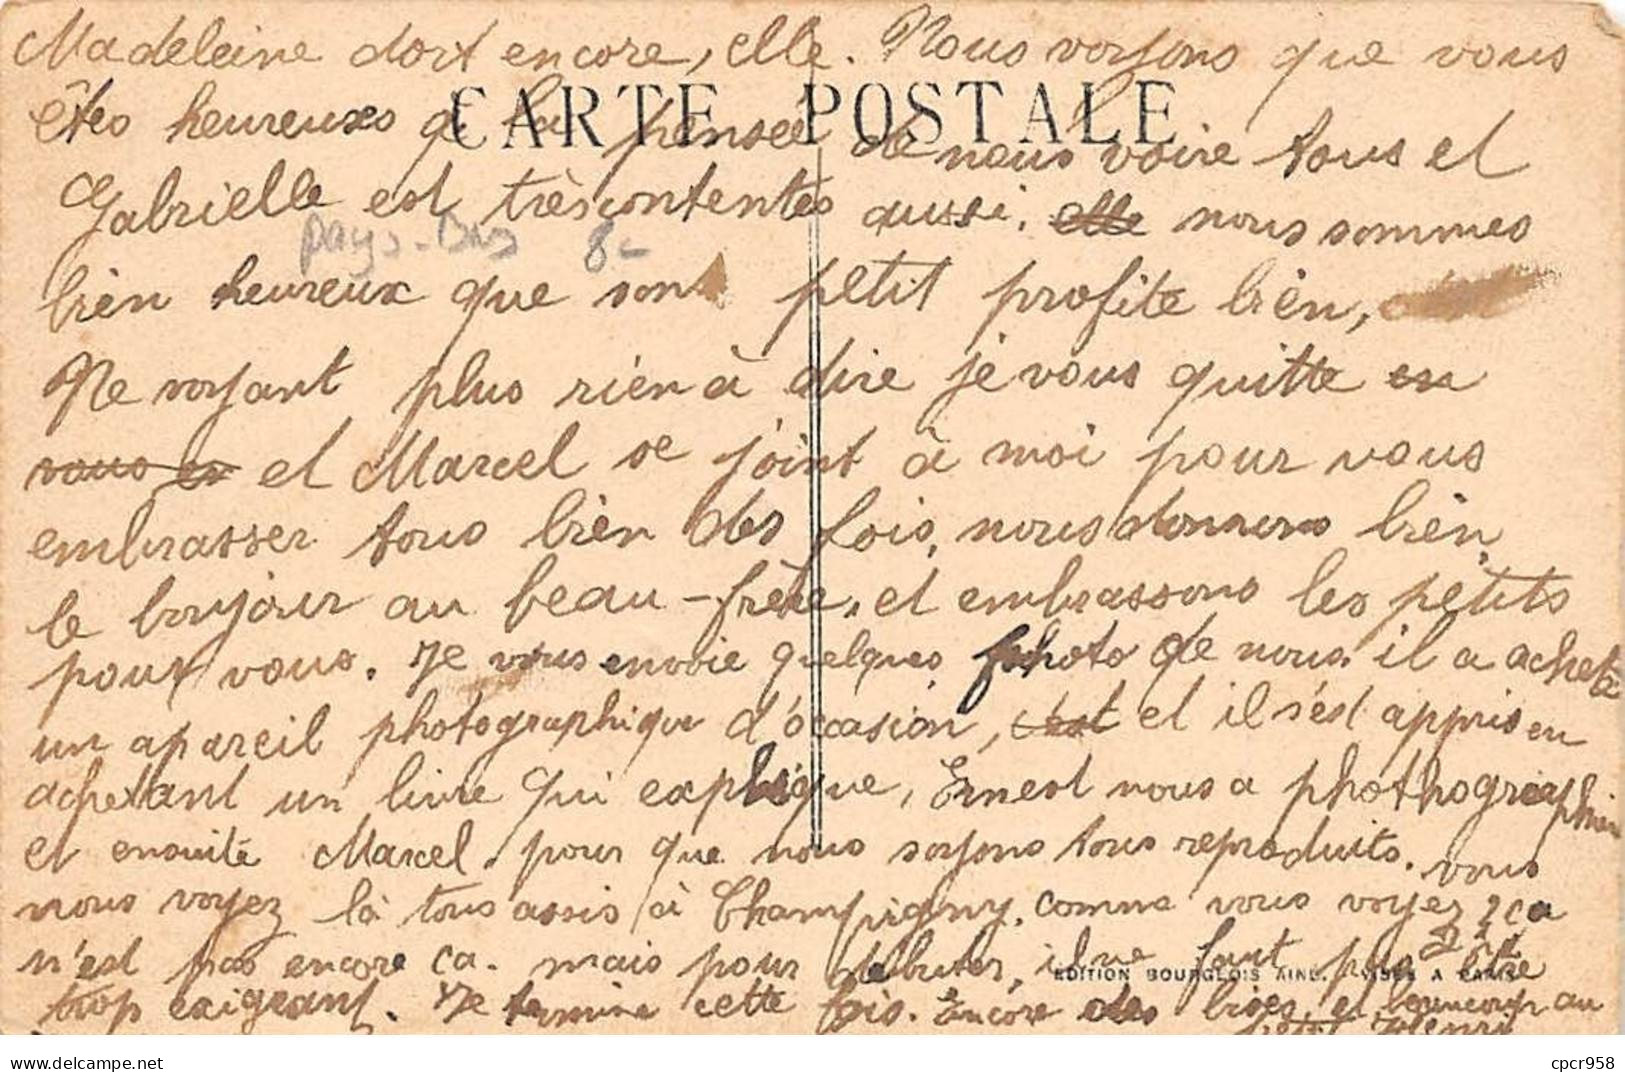 Madeleine dort encore, elle. Nous voyons que vous
CARTE POSTALE
êtes heureuxes à la pensée de nous voire tous et
Gabrielle est trèscontentes aussi. elle nous sommes
Pays-Bas 8-
bien heureux que son petit profite bien,
Ne voyant plus rien à dire je vous quitte en
vous en et Marcel se joint à moi pour vous
embrasser tous bien des fois, nous donnons bien
le bonjour au beau-frère, et embrassons les petits
pour vous. Je vous envoie quelques photo de nous. il a acheté
un apareil photographique d'occasion, c'est et il s'est appris en
achetant un livre qui explique, Ernest nous a phothographier
et ensuite Marcel. pour que nous soyons tous reproduits. vous
nous voyez là tous assis à Champigny. comme vous voyez ça
n'est pas encore ça. mais pour débuter, il ne faut pas être
EDITION BOURGEOIS AINE. VISES A PARIS
trop exigeant. Je termine cette fois. Encore des bises et beaucoup au
petit Henri
cpcr958